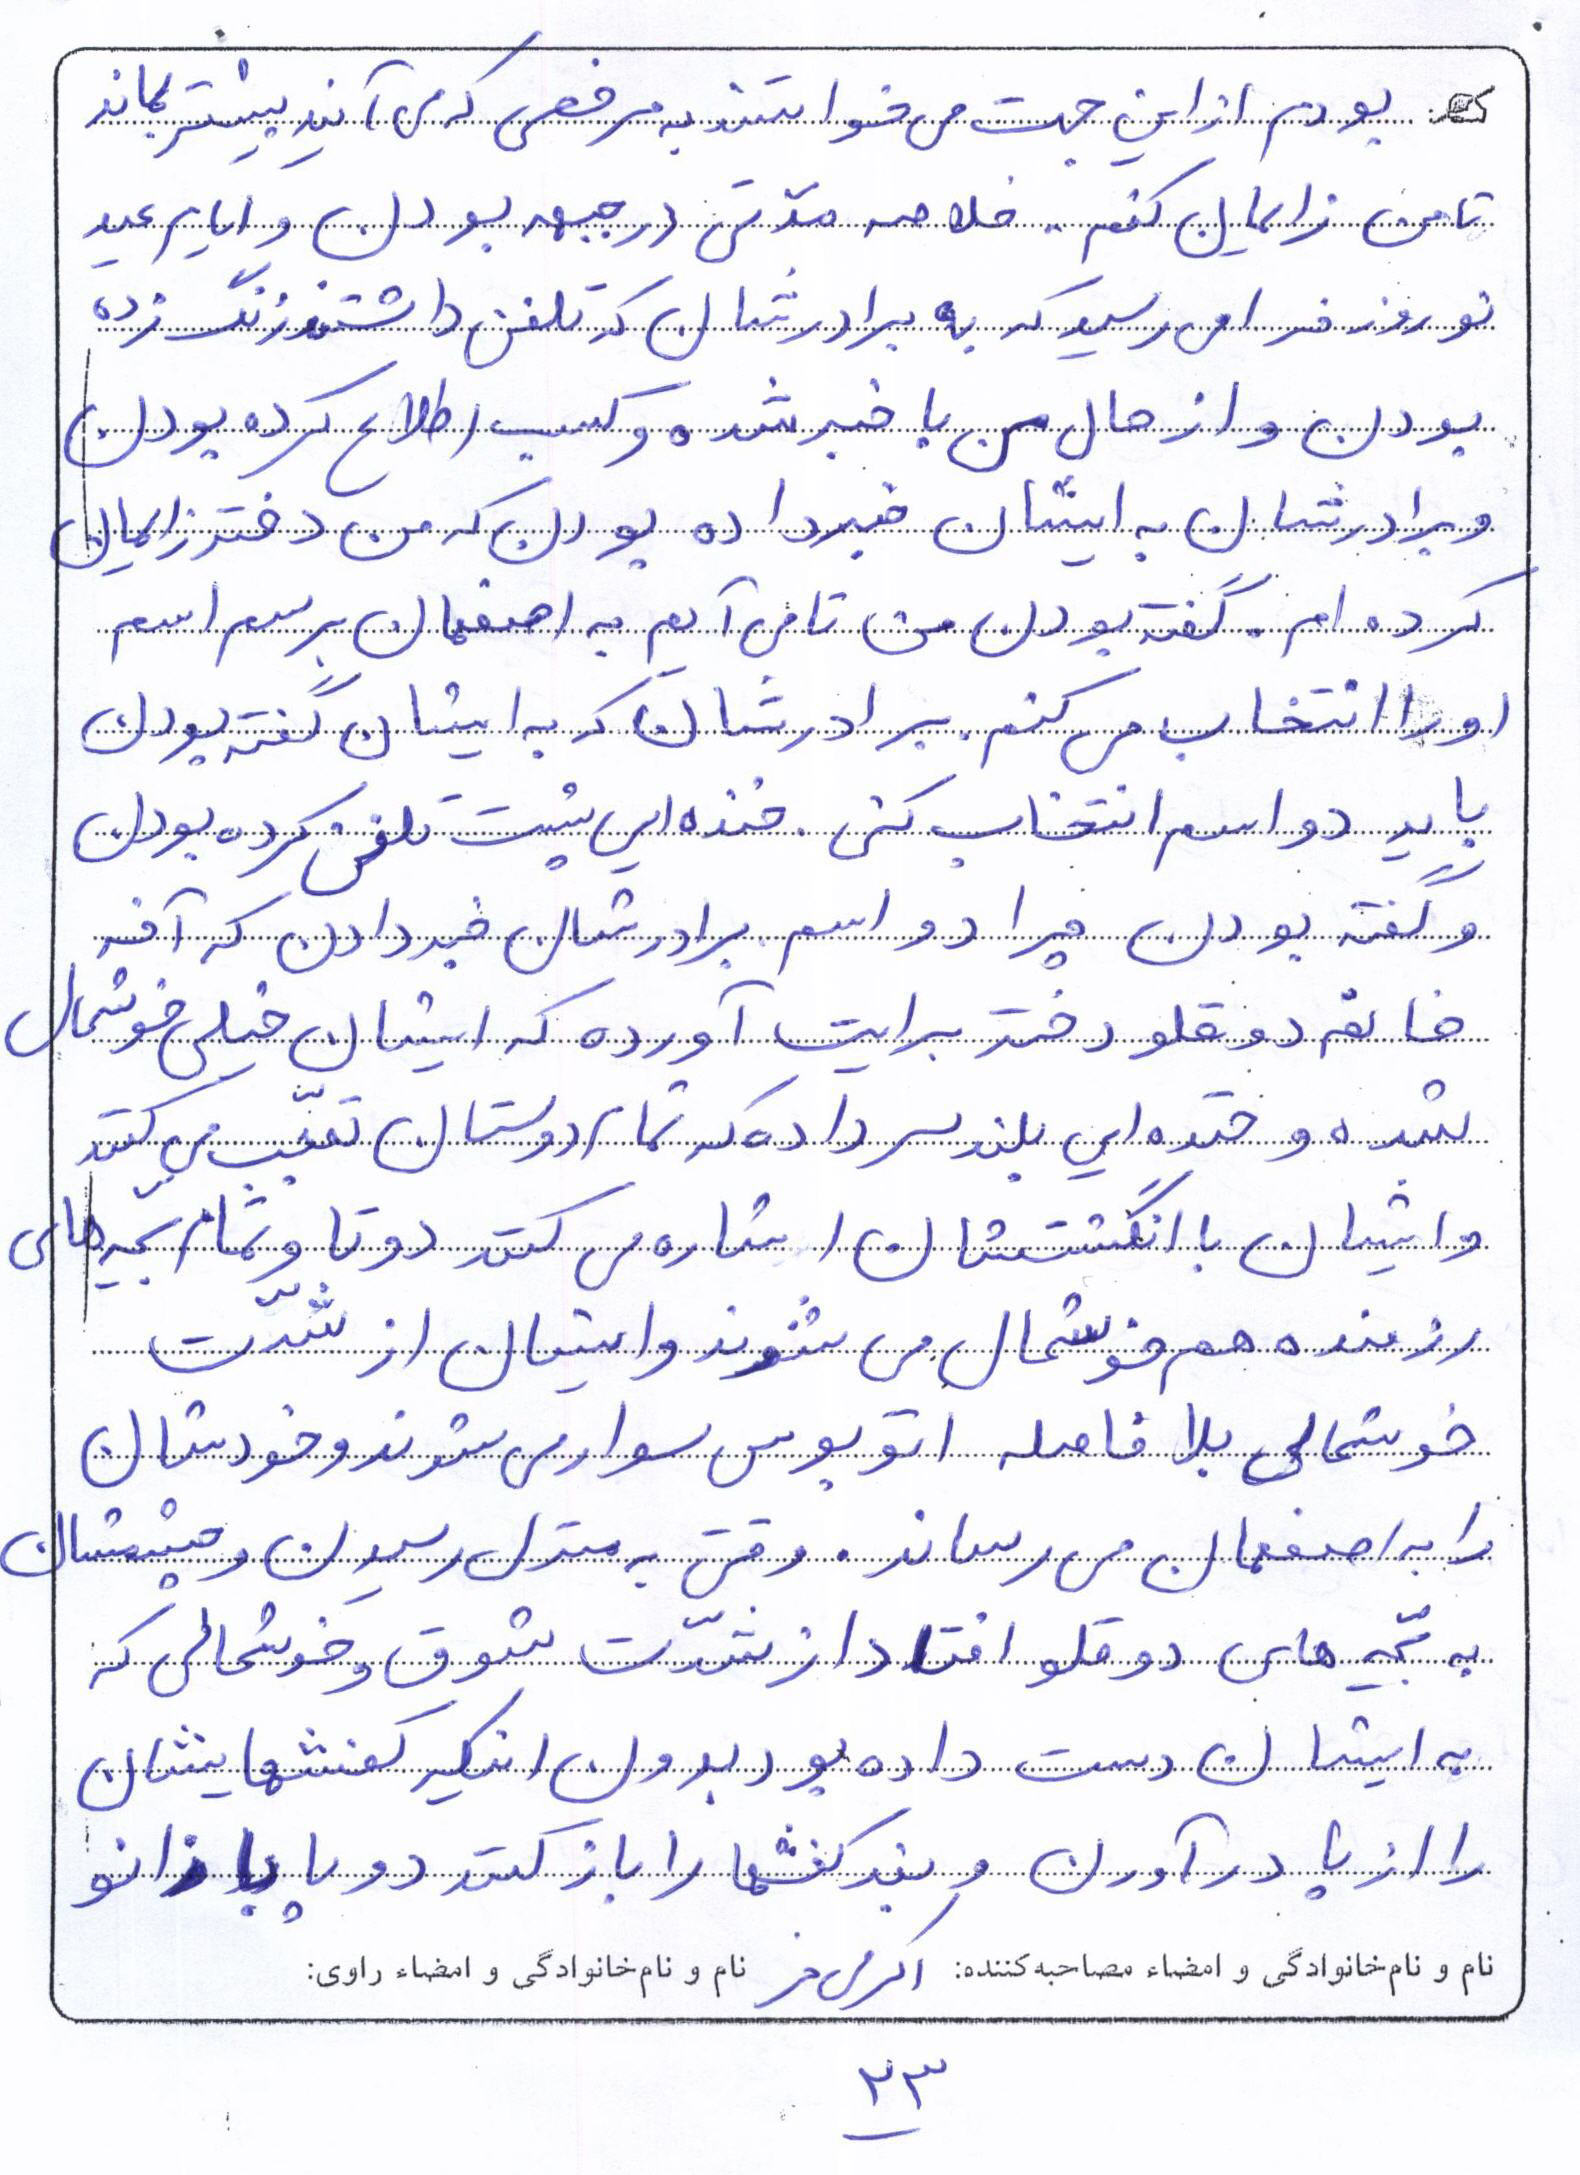 بودم از این جهت می خواستند به مرخصی که می آیند بیشتر بماند
تا من زایمان کنم. خلاصه مدّتی در جبهه بودن و ایام عید
نوروز فرا می رسید که به برادرشان که تلفن داشتند زنگ زده
بودن و از حال من با خبر شده و کسب اطلاع کرده بودن
و برادرشان به ایشان خبر داده بودن که من دختر زایمان
کرده ام. گفته بودن من تا می آیم به اصفهان برسم اسم
او را انتخاب می کنم. برادرشان که به ایشان گفته بودن
باید دو اسم انتخاب کنی. خنده ایی پشت تلفن کرده بودن
و گفته بودن چرا دو اسم. برادرشان خبر دادن که آخه
خانم دوقلو دختر برایت آورده که ایشان خیلی خوشحال
شده و خنده ایی بلند سر داده که تمام دوستان تعجّب می کنند
و ایشان با انگشتشان اشاره می کنند دو تا و تمام بچّه های
رزمنده هم خوشحال می شوند و ایشان از شدّت
خوشحالی بلا فاصله اتوبوس سوار می شوند و خودشان
را به اصفهان می رساند. وقتی به منزل رسیدن و چشمشان
به بچّه های دوقلو افتاد از شدّت شوق و خوشحالی که
به ایشان دست داده بود بدون اینکه کفشهایشان
را از پا در آورن و بند کفشها را باز کنند دو پا با زانو
نام و نام خانوادگی و امضاء مصاحبه کننده: نام و نام خانوادگی و امضاء راوی:
۲۳